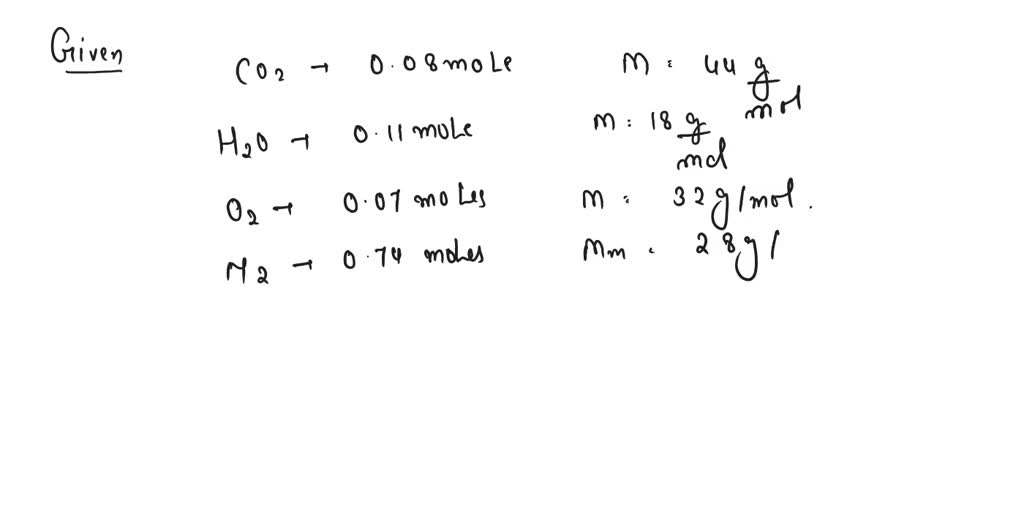 Given
CO2 → 0.08 mole M = 44 g/mol
H2O → 0.11 mole M : 18 g/mol
O2 → 0.07 moles M = 32 g/mol.
N2 → 0.74 moles Mm = 28 g/